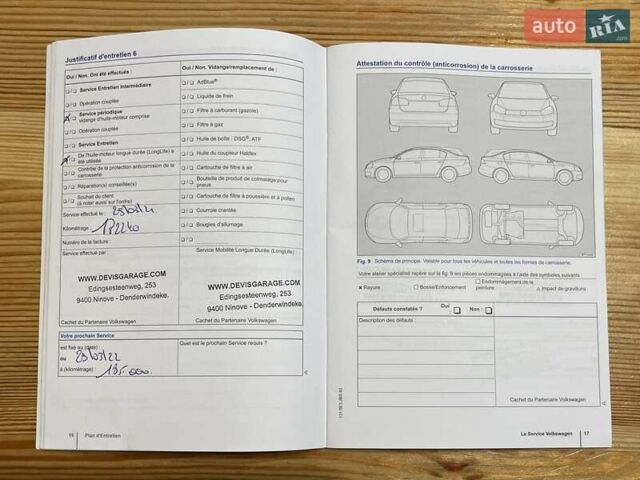 auto RIA.com
Justificatif d'entretien 6
Oui / Non. Ont été effectués :
Service Entretien Intermédiaire
Opération couplée
Service périodique
vidange d'huile-moteur comprise
Opération couplée
Service Entretien
De l'huile-moteur longue durée (LongLife) a
été utilisée
Contrôle de la protection anticorrosion de la
carrosserie
Réparation(s) conseillée(s)
Souhait du client
(à noter aussi sur l'ordre)
Service effectué le :
Kilométrage
Numéro de la facture :
Service effectué par :
WWW.DEVISGARAGE.COM
Edingsesteenweg, 253
9400 Ninove - Denderwindeke.
Cachet du Partenaire Volkswagen
Oui / Non. Vidange/remplacement de :
AdBlue®
Liquide de frein
Filtre à carburant (gazole)
Filtre à gaz
Huile de boîte : DSG®, ATF
Huile du coupleur Haldex
Cartouche de filtre à air
Bouteille de produit de colmatage pour
pneus
Cartouche de filtre à poussière et à pollen
Courroie crantée
Bougies d'allumage
Service Mobilité Longue Durée (LongLife) :
WWW.DEVISGARAGE.COM
Edingsesteenweg, 253
9400 Ninove - Denderwindeke.
Cachet du Partenaire Volkswagen
Votre prochain Service
est fixé au (date) :
ou
à (kilométrage) :
Quel est le prochain Service requis ?
16 Plan d'Entretien
Attestation du contrôle (anticorrosion) de la carrosserie
Fig. 9 Schéma de principe. Valable pour tous les véhicules et toutes les formes de carrosserie.
Votre atelier spécialisé repère sur la fig. 9 les pièces endommagées à l'aide des symboles suivants :
Rayure
Bosse/Enfoncement
Endommagement de la
peinture
Impact de gravillons
Défauts constatés ? Oui Non :
Description des défauts :
Cachet du Partenaire Volkswagen
Le Service Volkswagen 17